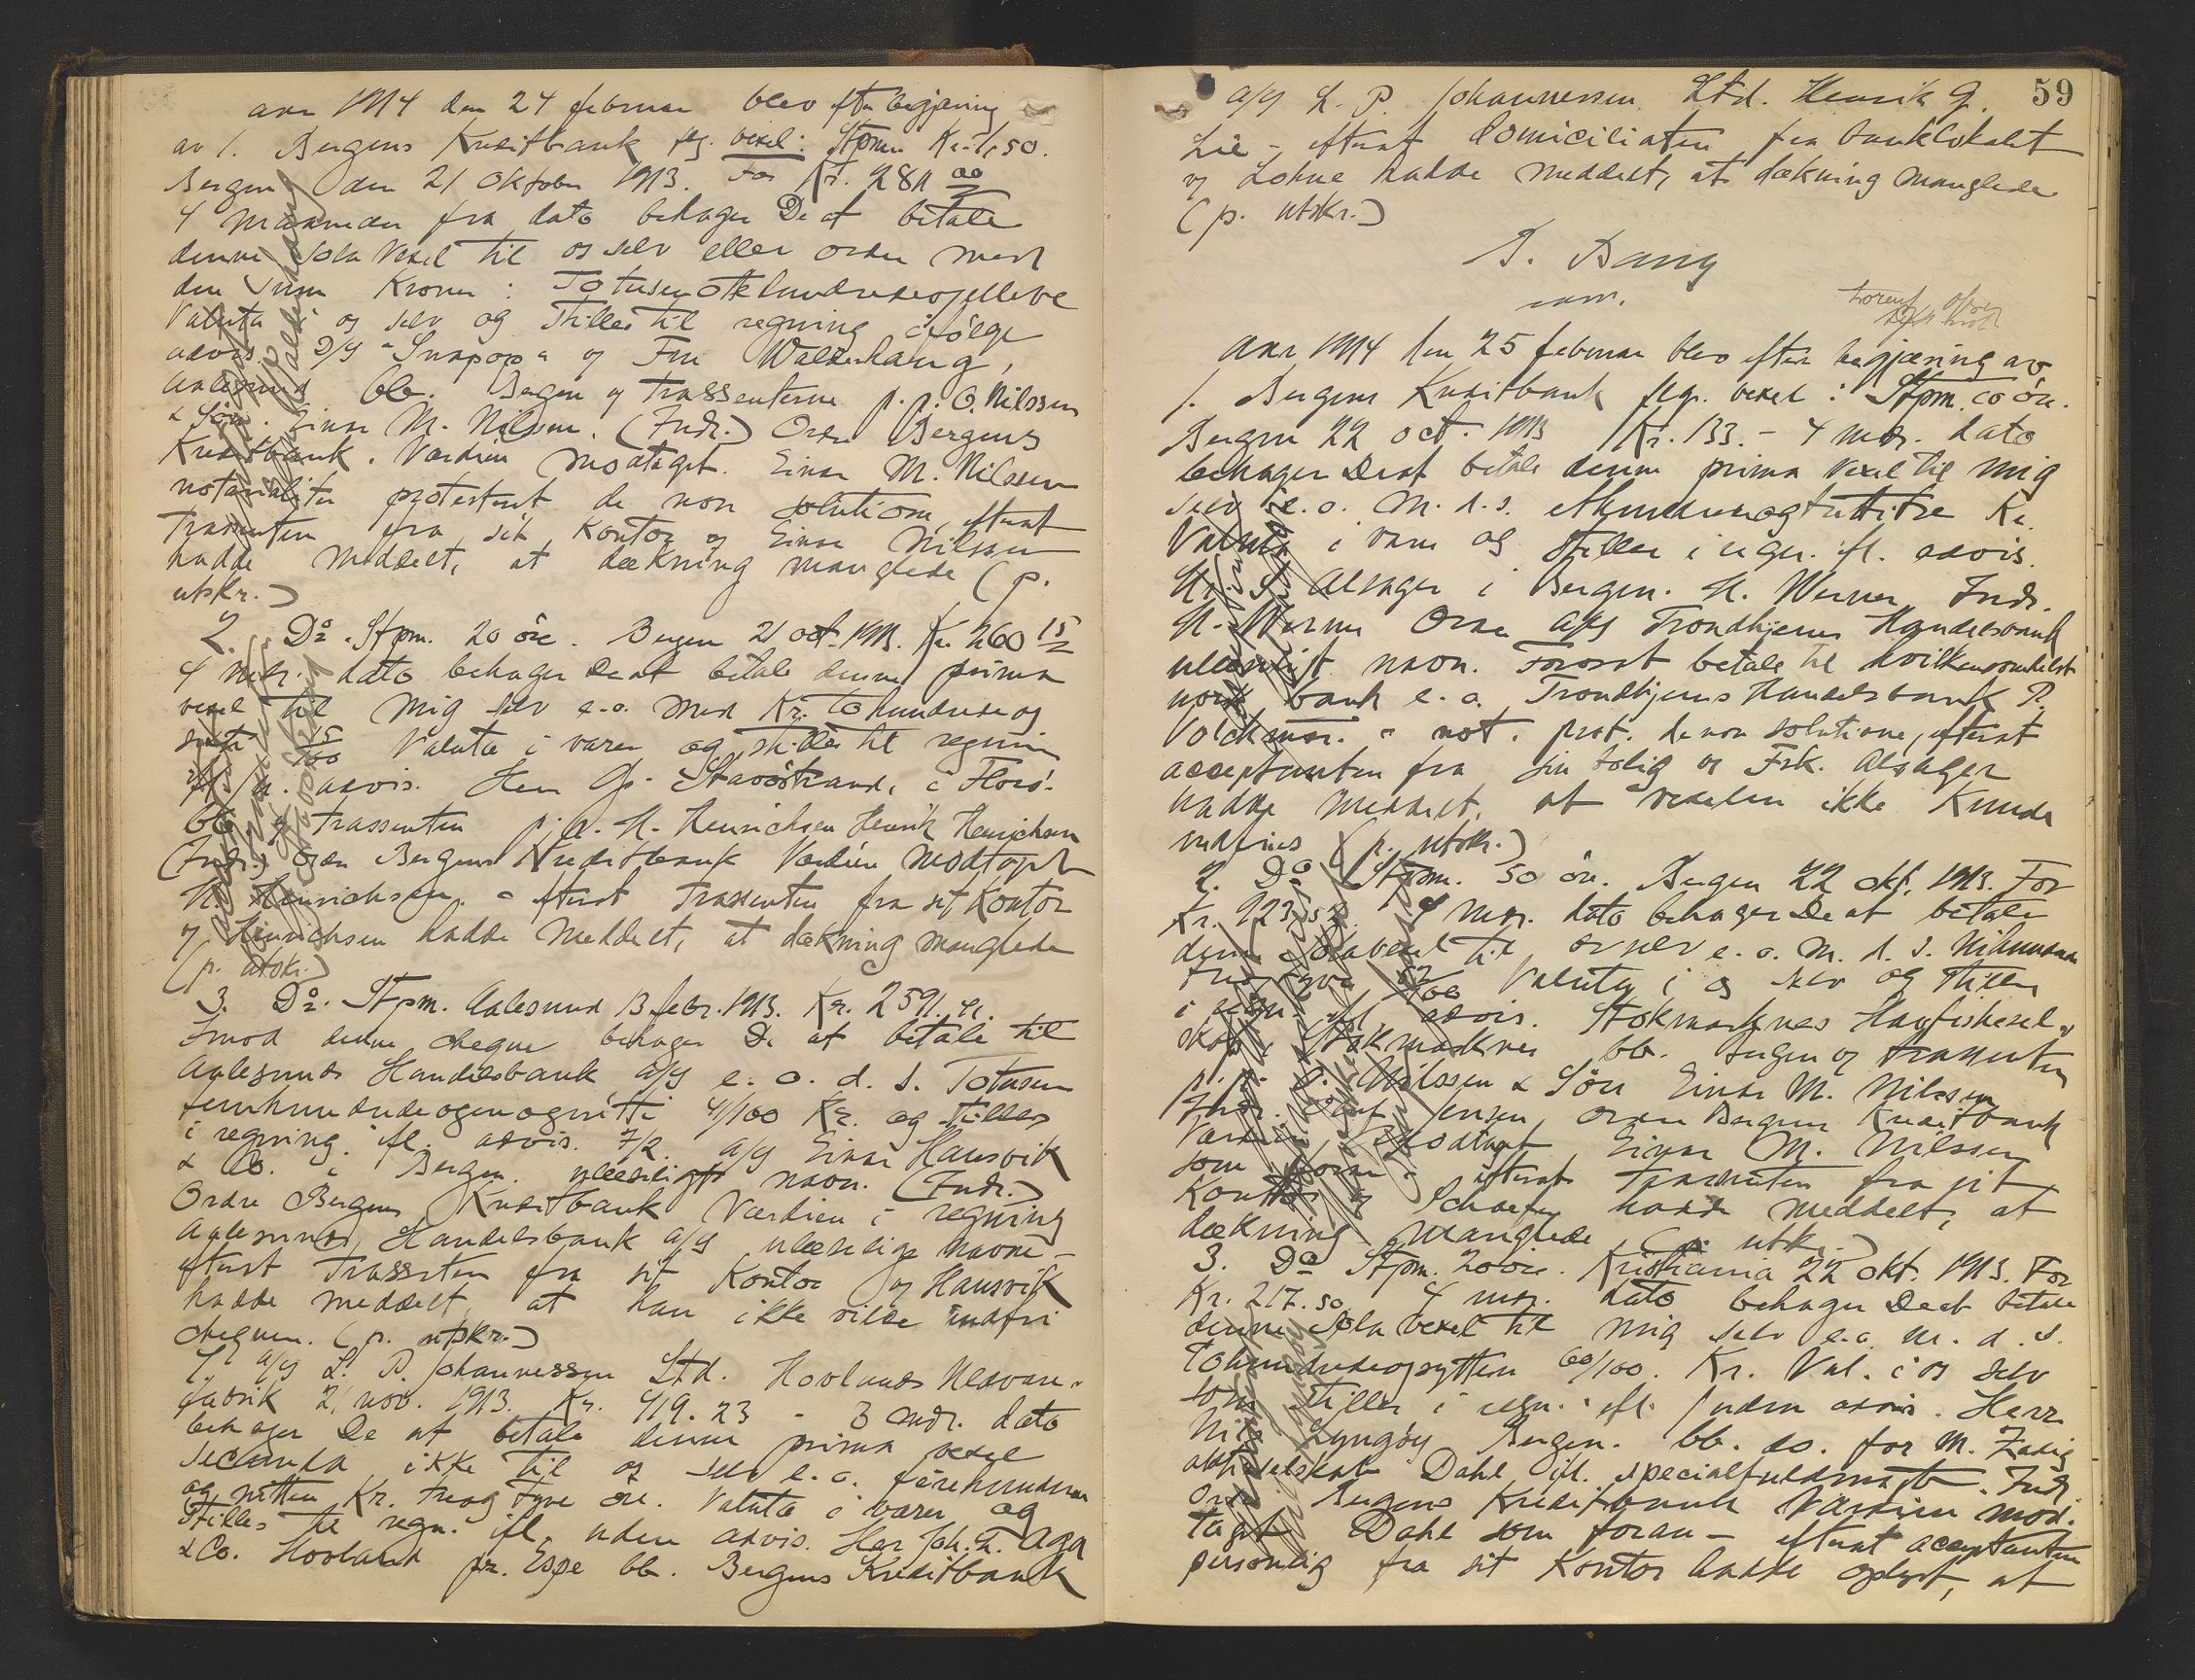 aar 1914 den 24 februar blev efter begjæring
av 1. Bergens Kreditbank flg. vexel: Stpm. Kr. 1,50.
Bergen den 21 Oktober 1913. For Kr. 2811 00
4 maaneder fra dato behager De at betale
denne Sola Vexel til os selv eller ordre med
den Sum Kroner: Totusenottehundredeogelleve
Valuta i os selv og Stilles til regning ifølge
advis D/S "Snapop" og Fru Walderhaug,
Aalesund bb. Bergen og trassenterne p.p. O. Nilssen
& Søn. Einar M. Nilssen. (Indr.) Ordre Bergens
Kreditbank. Værdien modtaget. Einar M. Nilssen
notarialiter protestert de non solutione, efterat
Trassenten fra sit Kontor og Einar Nilssen
hadde meddelt, at dækning manglede (p.
utskr.)
2. Do. Stpm. 20 øre. Bergen 21 oct. 1913. Kr. 260 15
4 mdr. dato behager De at betale denne prima
vexel til mig selv e.o. med Kr. tohundrede og
seksti 15/100 Valuta i varer og stilles til regning
advis. Herr Stavøstrand, i Florø.
bb. og trassenten p.p. H. Henrichsen Henrik Henrichsen
(Indr.) Ordre Bergens Kreditbank Værdien modtaget
H. Henrichsen. - efterat Trassenten fra sit Kontor
og Henrichsen hadde meddelt, at dækning manglede
(p. utskr.)
3. Do. Stpm. Aalesund 13 febr. 1913. Kr. 2591.41.
Imod denne cheque behager De at betale til
Aalesunds Handelsbank a/s e. o. d. s. Totusen
femhundredeogenognitti 41/100 Kr. og stilles
i regning ifl. advis. 7/2. a/s Einar Hansvik
& Co. i Bergen. ulæseligt navn. (Indr.)
Ordre Bergens Kreditbank Værdien i regning
Aalesunds Handelsbank a/s ulæselige navne -
efterat Trassaten fra sit Kontor og Hansvik
hadde meddelt, at han ikke vilde indfri
chequen. (p. utskr.)
4. a/s L. P. Johannessen Ltd. Hovlands Uldvare-
fabrik 21 nov. 1913. Kr. 419.23 - 3 mdr. dato
behager De at betale denne prima vexel
secunda ikke til os selv e.o. firehundrede
og nitten Kr. treogtyve øre. Valuta i varer og
Stilles til regn. ifl. uden advis. Herr Joh. T. Aga
& Co. Hovland pr. Espe bb. Bergens Kreditbank
59
a/s L. P. Johannessen Ltd. Henrik G.
Lie - efterat domiciliaten fra banklokalet
og Lohne hadde meddelt, at dækning manglede
(p. utskr.)
B. Bang
const.
Aar 1914 den 25 februar blev efter begjæring av
1. Bergens Kreditbank flg. vexel: Stpm. 20 øre.
Bergen 22 oct. 1913 Kr. 133.- 4 mdr. dato
behager De at betale denne prima vexel til mig
selv e.o. m. d. s. ethundredeogtrettitre Kr.
Valuta i vare og stilles i regn. ifl. advis.
Hr. S. Alsager i Bergen. H. Werner Indr.
H. Werner Ordre a/s Trondhjems Handelsbank
ulæseligt navn. Forøvrigt betale til hvilkensomhelst
norsk bank e.o. Trondhjems Handelsbank P.
Volckmar. - not. prot. de non solutione, efterat
acceptanten fra sin bolig og Frk. Alsager
hadde meddelt, at vexelen ikke Kunde
indfries (p. utskr.)
2. Do Stpm. 50 øre. Bergen 22 okt. 1913. For
Kr. 923,52 4 mdr. dato behager De at betale
denne Solavexel til os selv e.o. m. d. s. Nihundrede
treogtyve 52/100 Valuta i os selv og stilles
i regn. ifl. advis. Stokmarknes Havfiskesel-
skap, Stokmarknes bb. Bergen og trassenten
p.p. O. Nilssen & Søn Einar M. Nilssen
Jensen, ordre Bergens Kreditbank
Værdien modtaget Einar M. Nilssen
som foran - efterat trassenten fra sit
Kontor og Schaefer hadde meddelt, at
dækning manglede. (p. utskr.)
3. Do Stpm. 20 øre. Kristiania 22 okt. 1913. For
Kr. 217.50 4 mdr. dato behager De at betale
denne Sola vexel til mig selv e.o. m. d. s.
Tohundredeogsytten 60/100. Kr. Val. i os selv
som stilles i regn. ifl. uden advis. Herr
Nils Lyngøy Bergen. bb. do. for M. Zadig
aktieselskab Dahl ifl. specialfuldmagt. Indr.
Ordre Bergens Kreditbank Værdien mod-
taget Dahl som foran - efterat acceptanten
personlig fra sit Kontor hadde oplyst, at